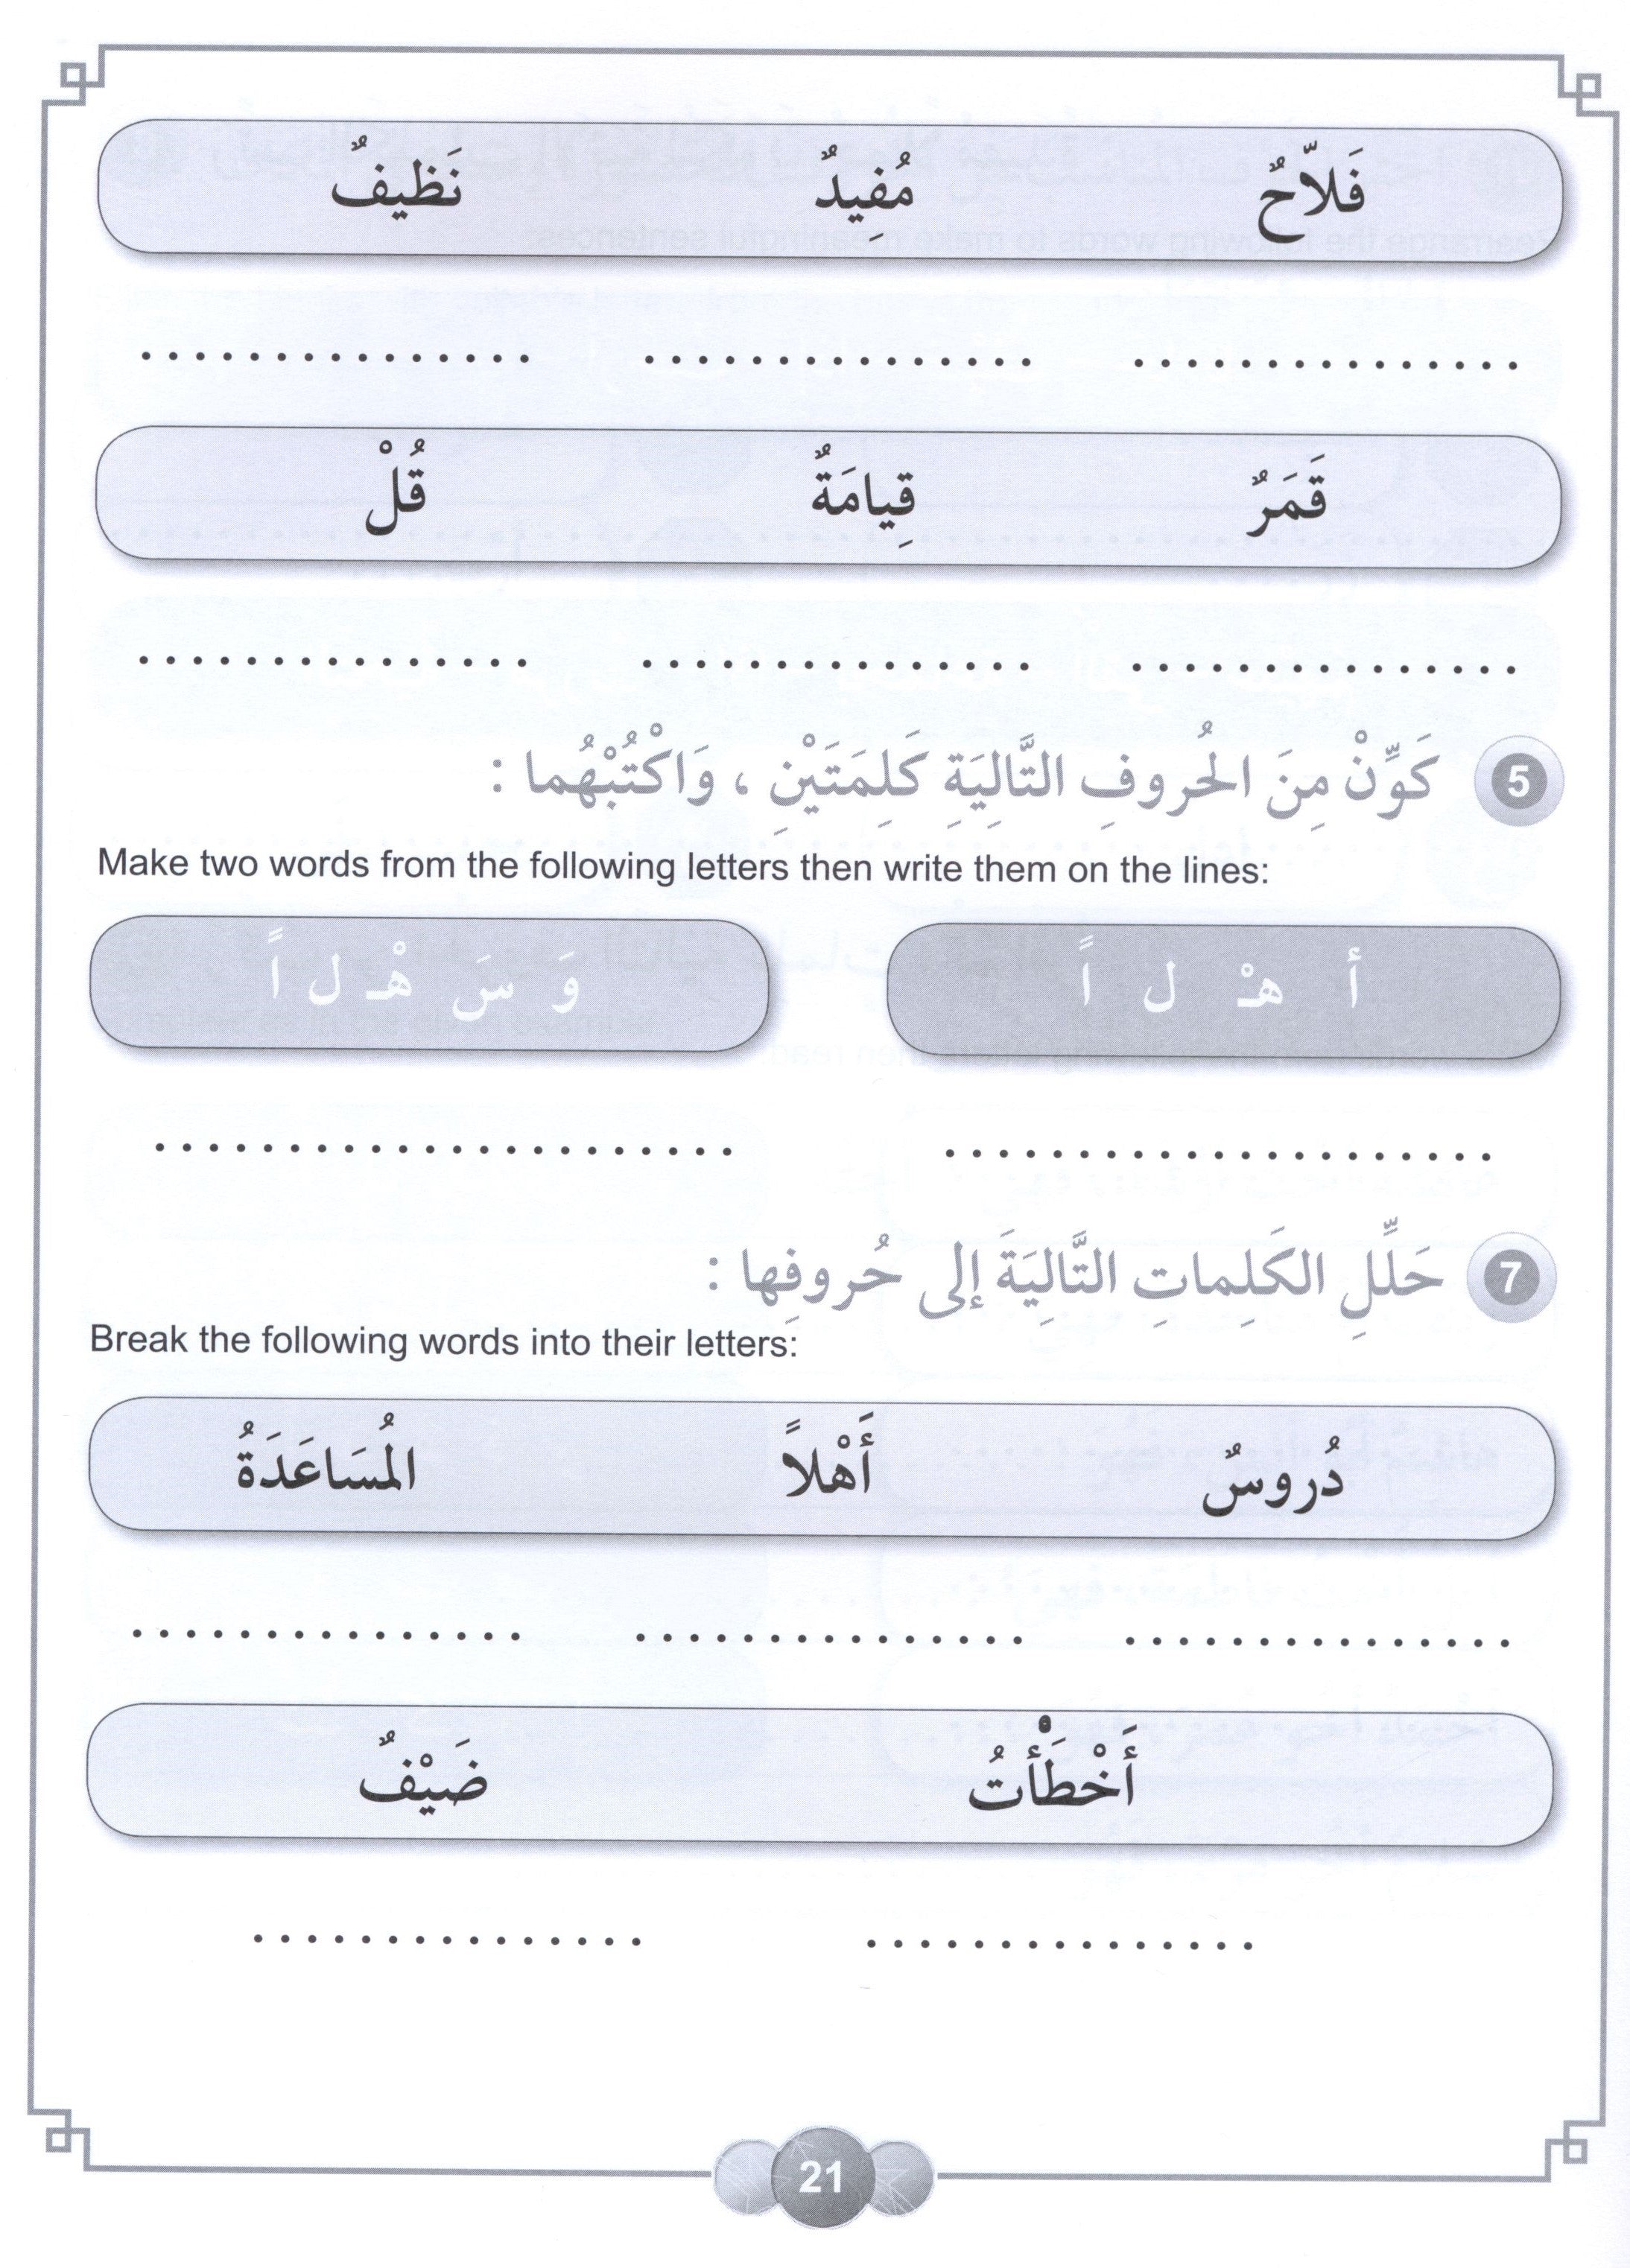 فَلاّحٌ مُفِيدٌ نَظيفٌ
قَمَرٌ قِيامَةٌ قُلْ
5 كَوِّنْ مِنَ الحُروفِ التَّالِيَةِ كَلِمَتَيْنِ ، وَاكْتُبْهُما :
Make two words from the following letters then write them on the lines:
أ هْـ ل اً وَ سَـ هْـ ل اً
7 حَلِّلِ الكَلِماتِ التَّالِيَةَ إلى حُروفِها :
Break the following words into their letters:
دُروسٌ أَهْلاً المُسَاعَدَةُ
أَخْطَأْتُ ضَيْفٌ
21